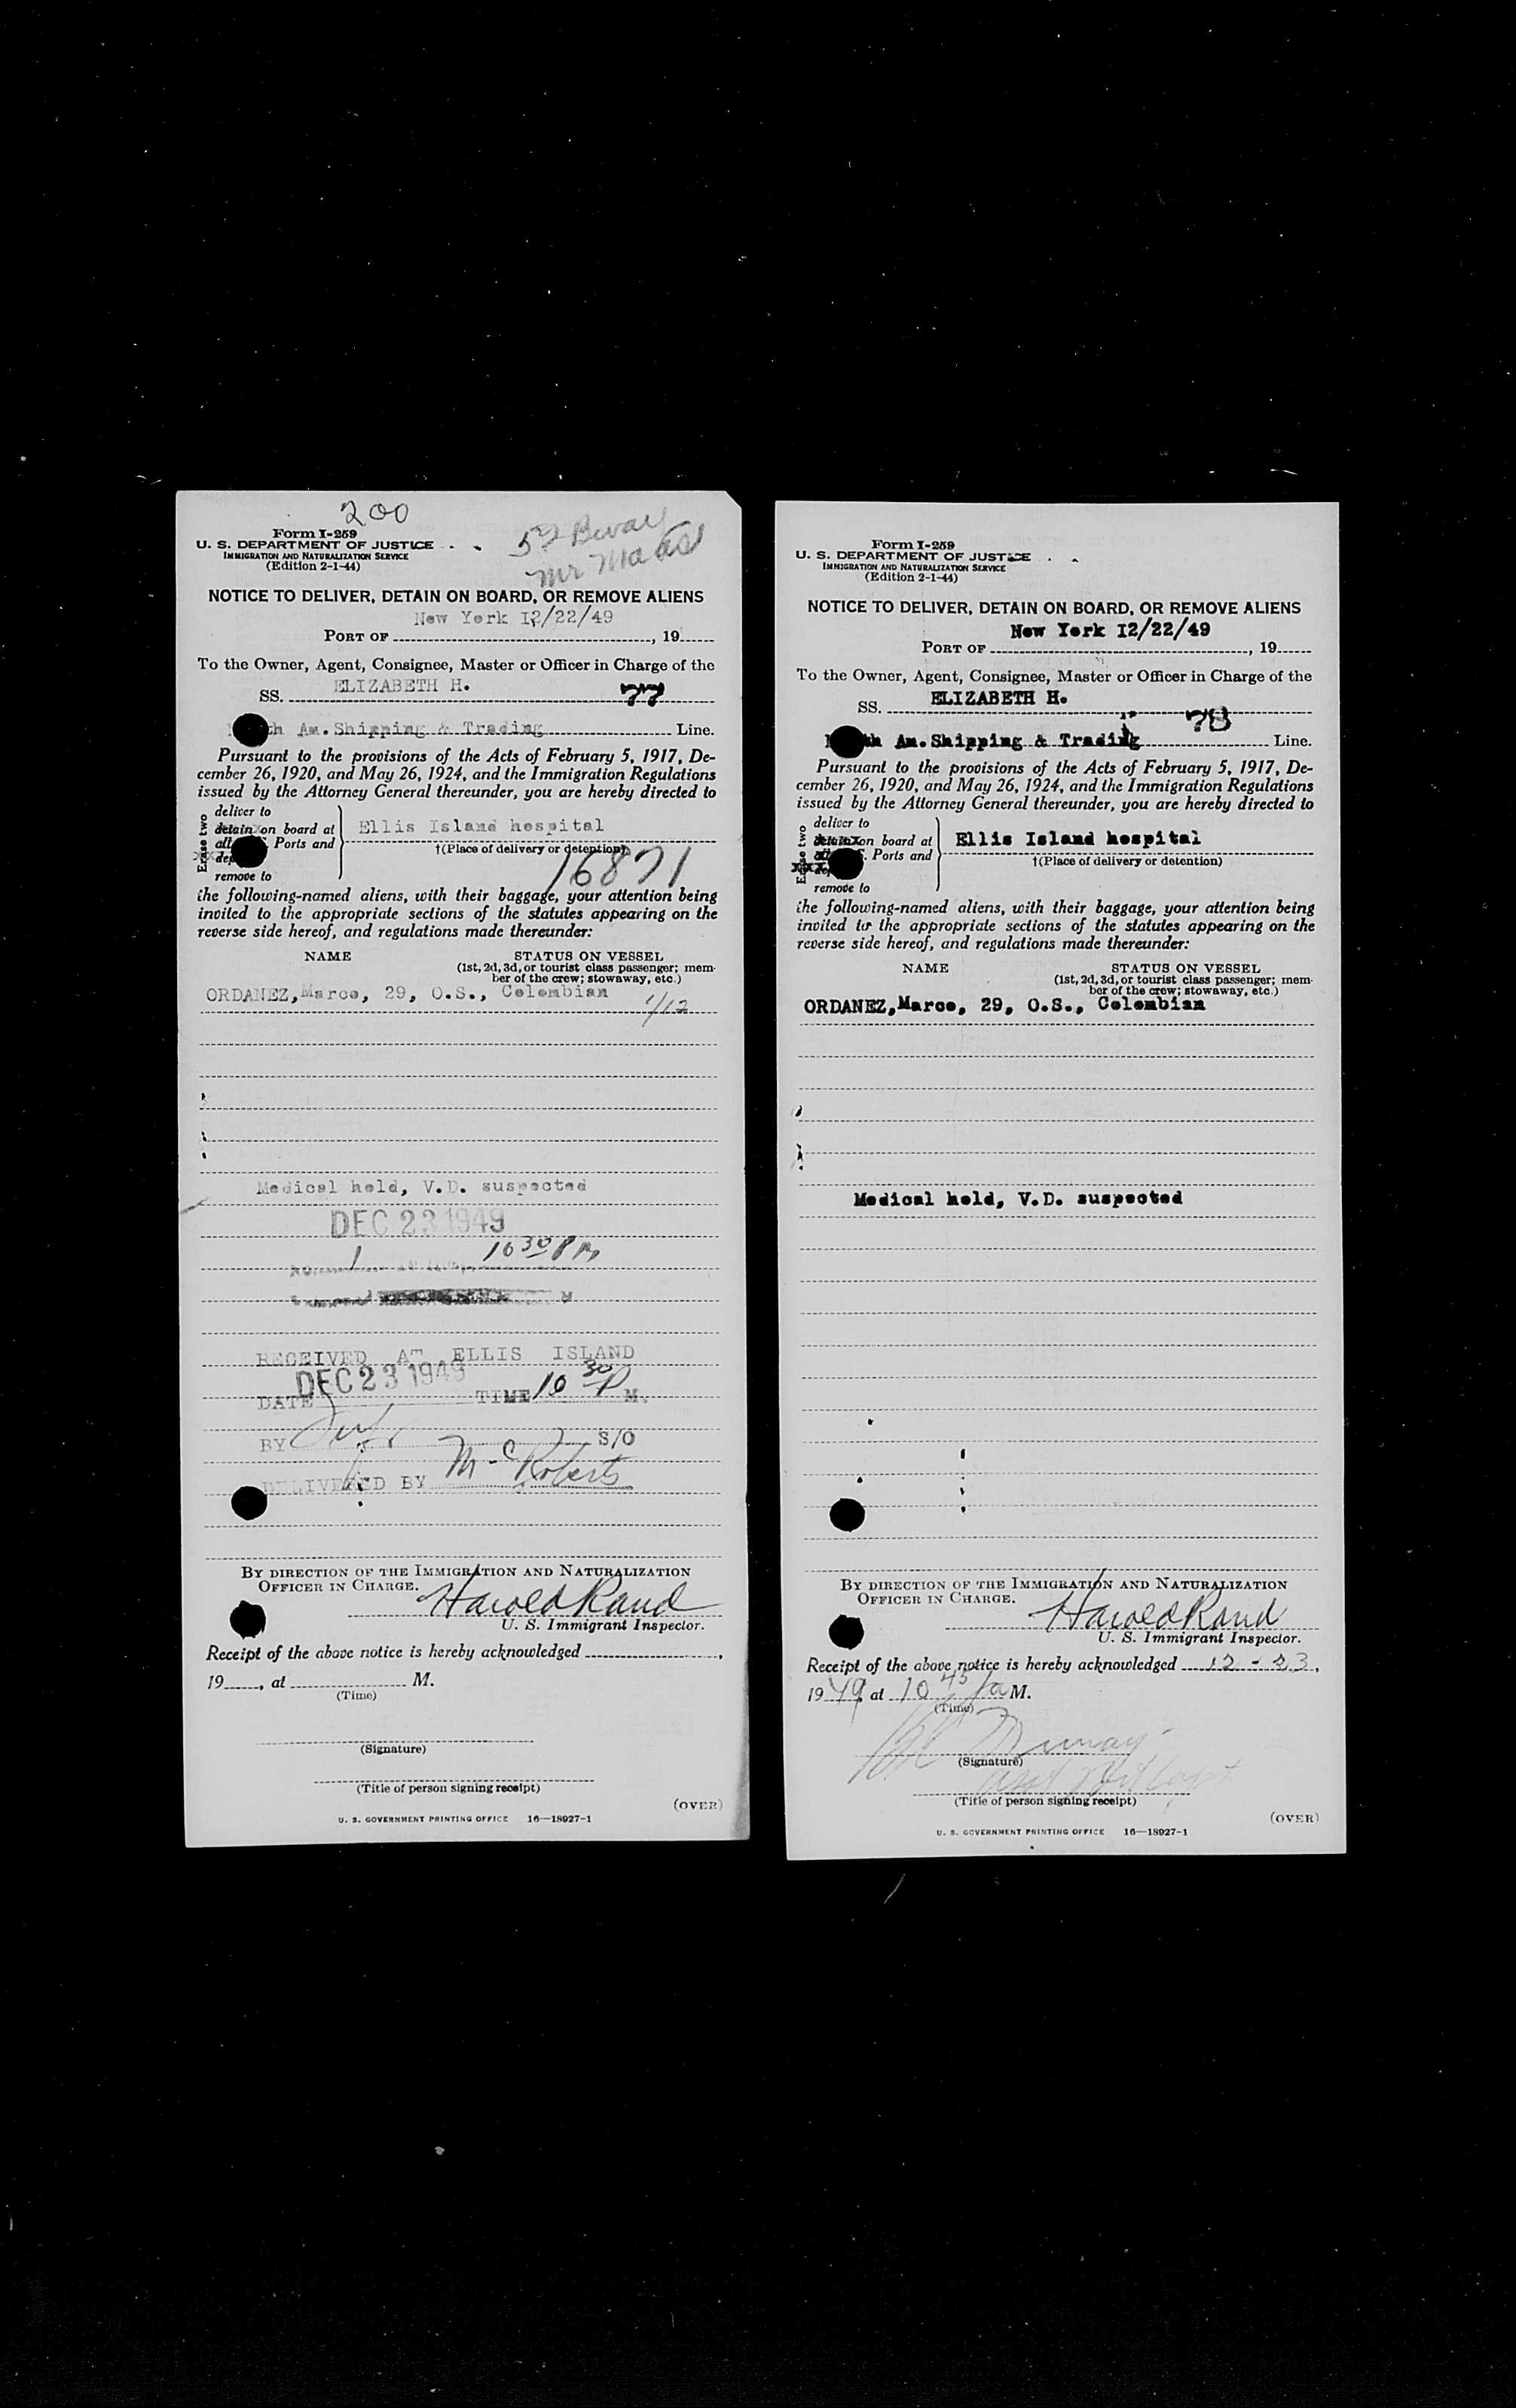 200
Form I-259
U. S. DEPARTMENT OF JUSTICE
IMMIGRATION AND NATURALIZATION SERVICE
(Edition 2-1-44)
Mr
NOTICE TO DELIVER, DETAIN ON BOARD, OR REMOVE ALIENS
New York 12/22/49
PORT OF , 19
To the Owner, Agent, Consignee, Master or Officer in Charge of the
ELIZABETH H.
SS. 77
Am. Shipping & Trading Line.
Pursuant to the provisions of the Acts of February 5, 1917, De-
cember 26, 1920, and May 26, 1924, and the Immigration Regulations
issued by the Attorney General thereunder, you are hereby directed to
Erase two
deliver to
detain on board at
Ports and
remove to
Ellis Island hospital
†(Place of delivery or detention)
16871
the following-named aliens, with their baggage, your attention being
invited to the appropriate sections of the statutes appearing on the
reverse side hereof, and regulations made thereunder:
NAME STATUS ON VESSEL
(1st, 2d, 3d, or tourist class passenger; mem-
ber of the crew; stowaway, etc.)
ORDANEZ, Marco, 29, O.S., Colombian
1/12
Medical hold, V.D. suspected
DEC 23 1949
1 10 30 PM
RECEIVED AT ELLIS ISLAND
DEC 23 1949
DATE TIME 10 30 P M.
BY S/O
DELIVERED BY McRoberts
BY DIRECTION OF THE IMMIGRATION AND NATURALIZATION
OFFICER IN CHARGE.
Harold Rand
U. S. Immigrant Inspector.
Receipt of the above notice is hereby acknowledged ,
19 , at M.
(Time)
(Signature)
(Title of person signing receipt)
(OVER)
U. S. GOVERNMENT PRINTING OFFICE 16—18927-1
Form I-259
U. S. DEPARTMENT OF JUSTICE
IMMIGRATION AND NATURALIZATION SERVICE
(Edition 2-1-44)
NOTICE TO DELIVER, DETAIN ON BOARD, OR REMOVE ALIENS
New York 12/22/49
PORT OF , 19
To the Owner, Agent, Consignee, Master or Officer in Charge of the
ELIZABETH H.
SS.
78
Am. Shipping & Trading Line.
Pursuant to the provisions of the Acts of February 5, 1917, De-
cember 26, 1920, and May 26, 1924, and the Immigration Regulations
issued by the Attorney General thereunder, you are hereby directed to
Erase two
deliver to
on board at
Ports and
remove to
Ellis Island hospital
†(Place of delivery or detention)
the following-named aliens, with their baggage, your attention being
invited to the appropriate sections of the statutes appearing on the
reverse side hereof, and regulations made thereunder:
NAME STATUS ON VESSEL
(1st, 2d, 3d, or tourist class passenger; mem-
ber of the crew; stowaway, etc.)
ORDANEZ, Marco, 29, O.S., Colombian
Medical hold, V.D. suspected
BY DIRECTION OF THE IMMIGRATION AND NATURALIZATION
OFFICER IN CHARGE.
Harold Rand
U. S. Immigrant Inspector.
Receipt of the above notice is hereby acknowledged 12-23,
1949, at 10 45 a M.
(Time)
Murray
(Signature)
(Title of person signing receipt)
(OVER)
U. S. GOVERNMENT PRINTING OFFICE 16—18927-1